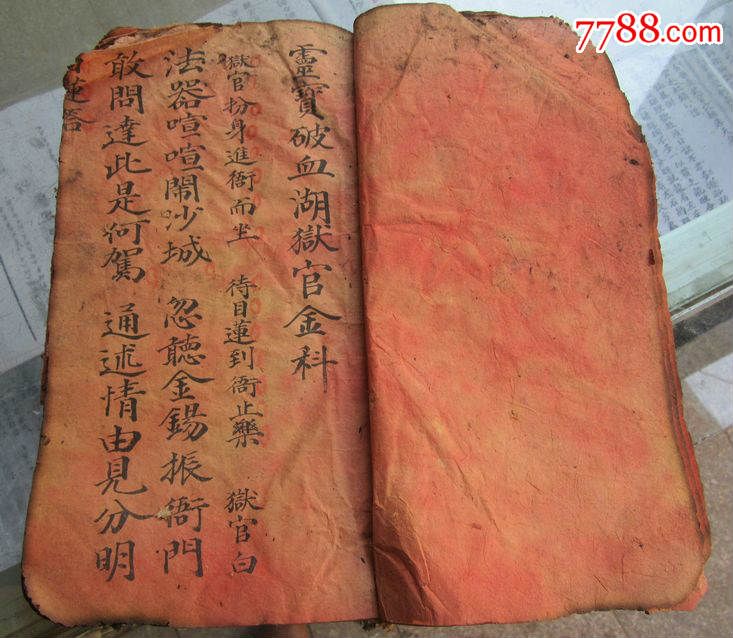 7788.com
靈寶破血湖獄官金科
獄官扮身進衙而坐 待目蓮到衙止藥 獄官白
法器喧喧鬧沙城 忽聽金錫振衙門
敢問達此是何駕 通述情由見分明
目蓮答